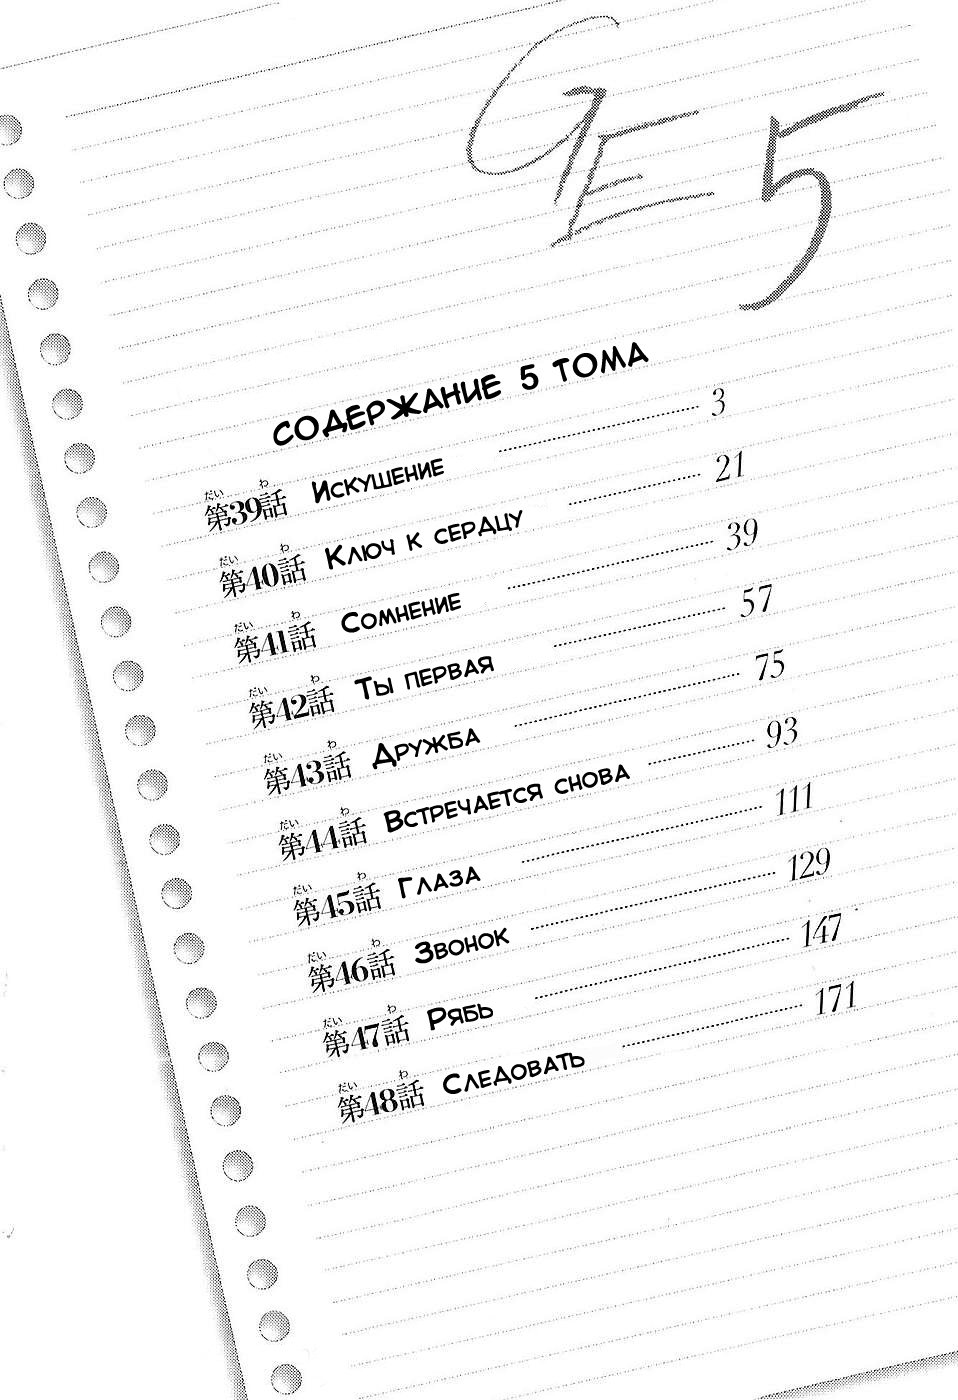 GE 5
СОДЕРЖАНИЕ 5 ТОМА
第39話 Искушение 3
第40話 Ключ к сердцу 21
第41話 Сомнение 39
第42話 Ты первая 57
第43話 Дружба 75
第44話 Встречается снова 93
第45話 Глаза 111
第46話 Звонок 129
第47話 Рябь 147
第48話 Следовать 171